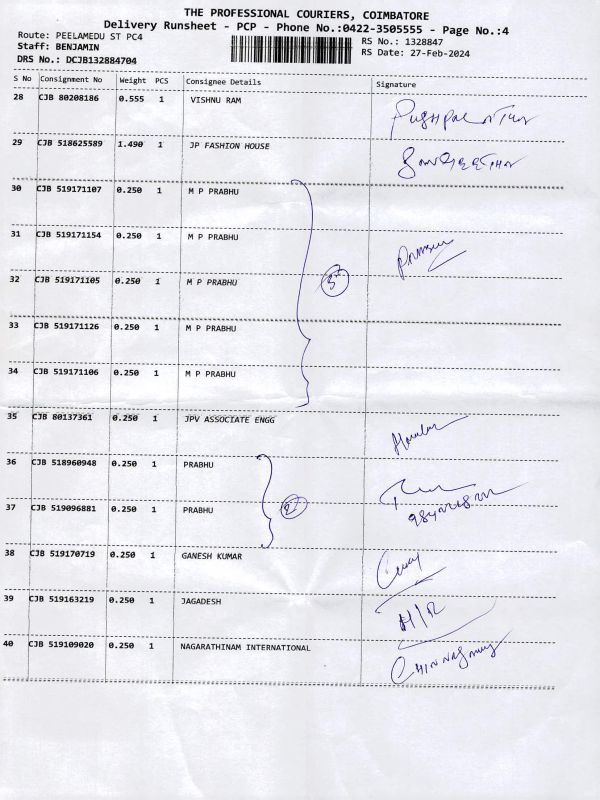 THE PROFESSIONAL COURIERS, COIMBATORE
Delivery Runsheet - PCP - Phone No.:0422-3505555 - Page No.:4
Route: PEELAMEDU ST PC4
RS No.: 1328847
Staff: BENJAMIN
RS Date: 27-Feb-2024
DRS No.: DCJB132884704
S No Consignment No Weight PCS Consignee Details Signature
28 CJB 80208186 0.555 1 VISHNU RAM
29 CJB 518625589 1.490 1 JP FASHION HOUSE
30 CJB 519171107 0.250 1 M P PRABHU
31 CJB 519171154 0.250 1 M P PRABHU
32 CJB 519171105 0.250 1 M P PRABHU
33 CJB 519171126 0.250 1 M P PRABHU
34 CJB 519171106 0.250 1 M P PRABHU
35 CJB 80137361 0.250 1 JPV ASSOCIATE ENGG
36 CJB 518960948 0.250 1 PRABHU
37 CJB 519096881 0.250 1 PRABHU
38 CJB 519170719 0.250 1 GANESH KUMAR
39 CJB 519163219 0.250 1 JAGADESH H/R
40 CJB 519109020 0.250 1 NAGARATHINAM INTERNATIONAL